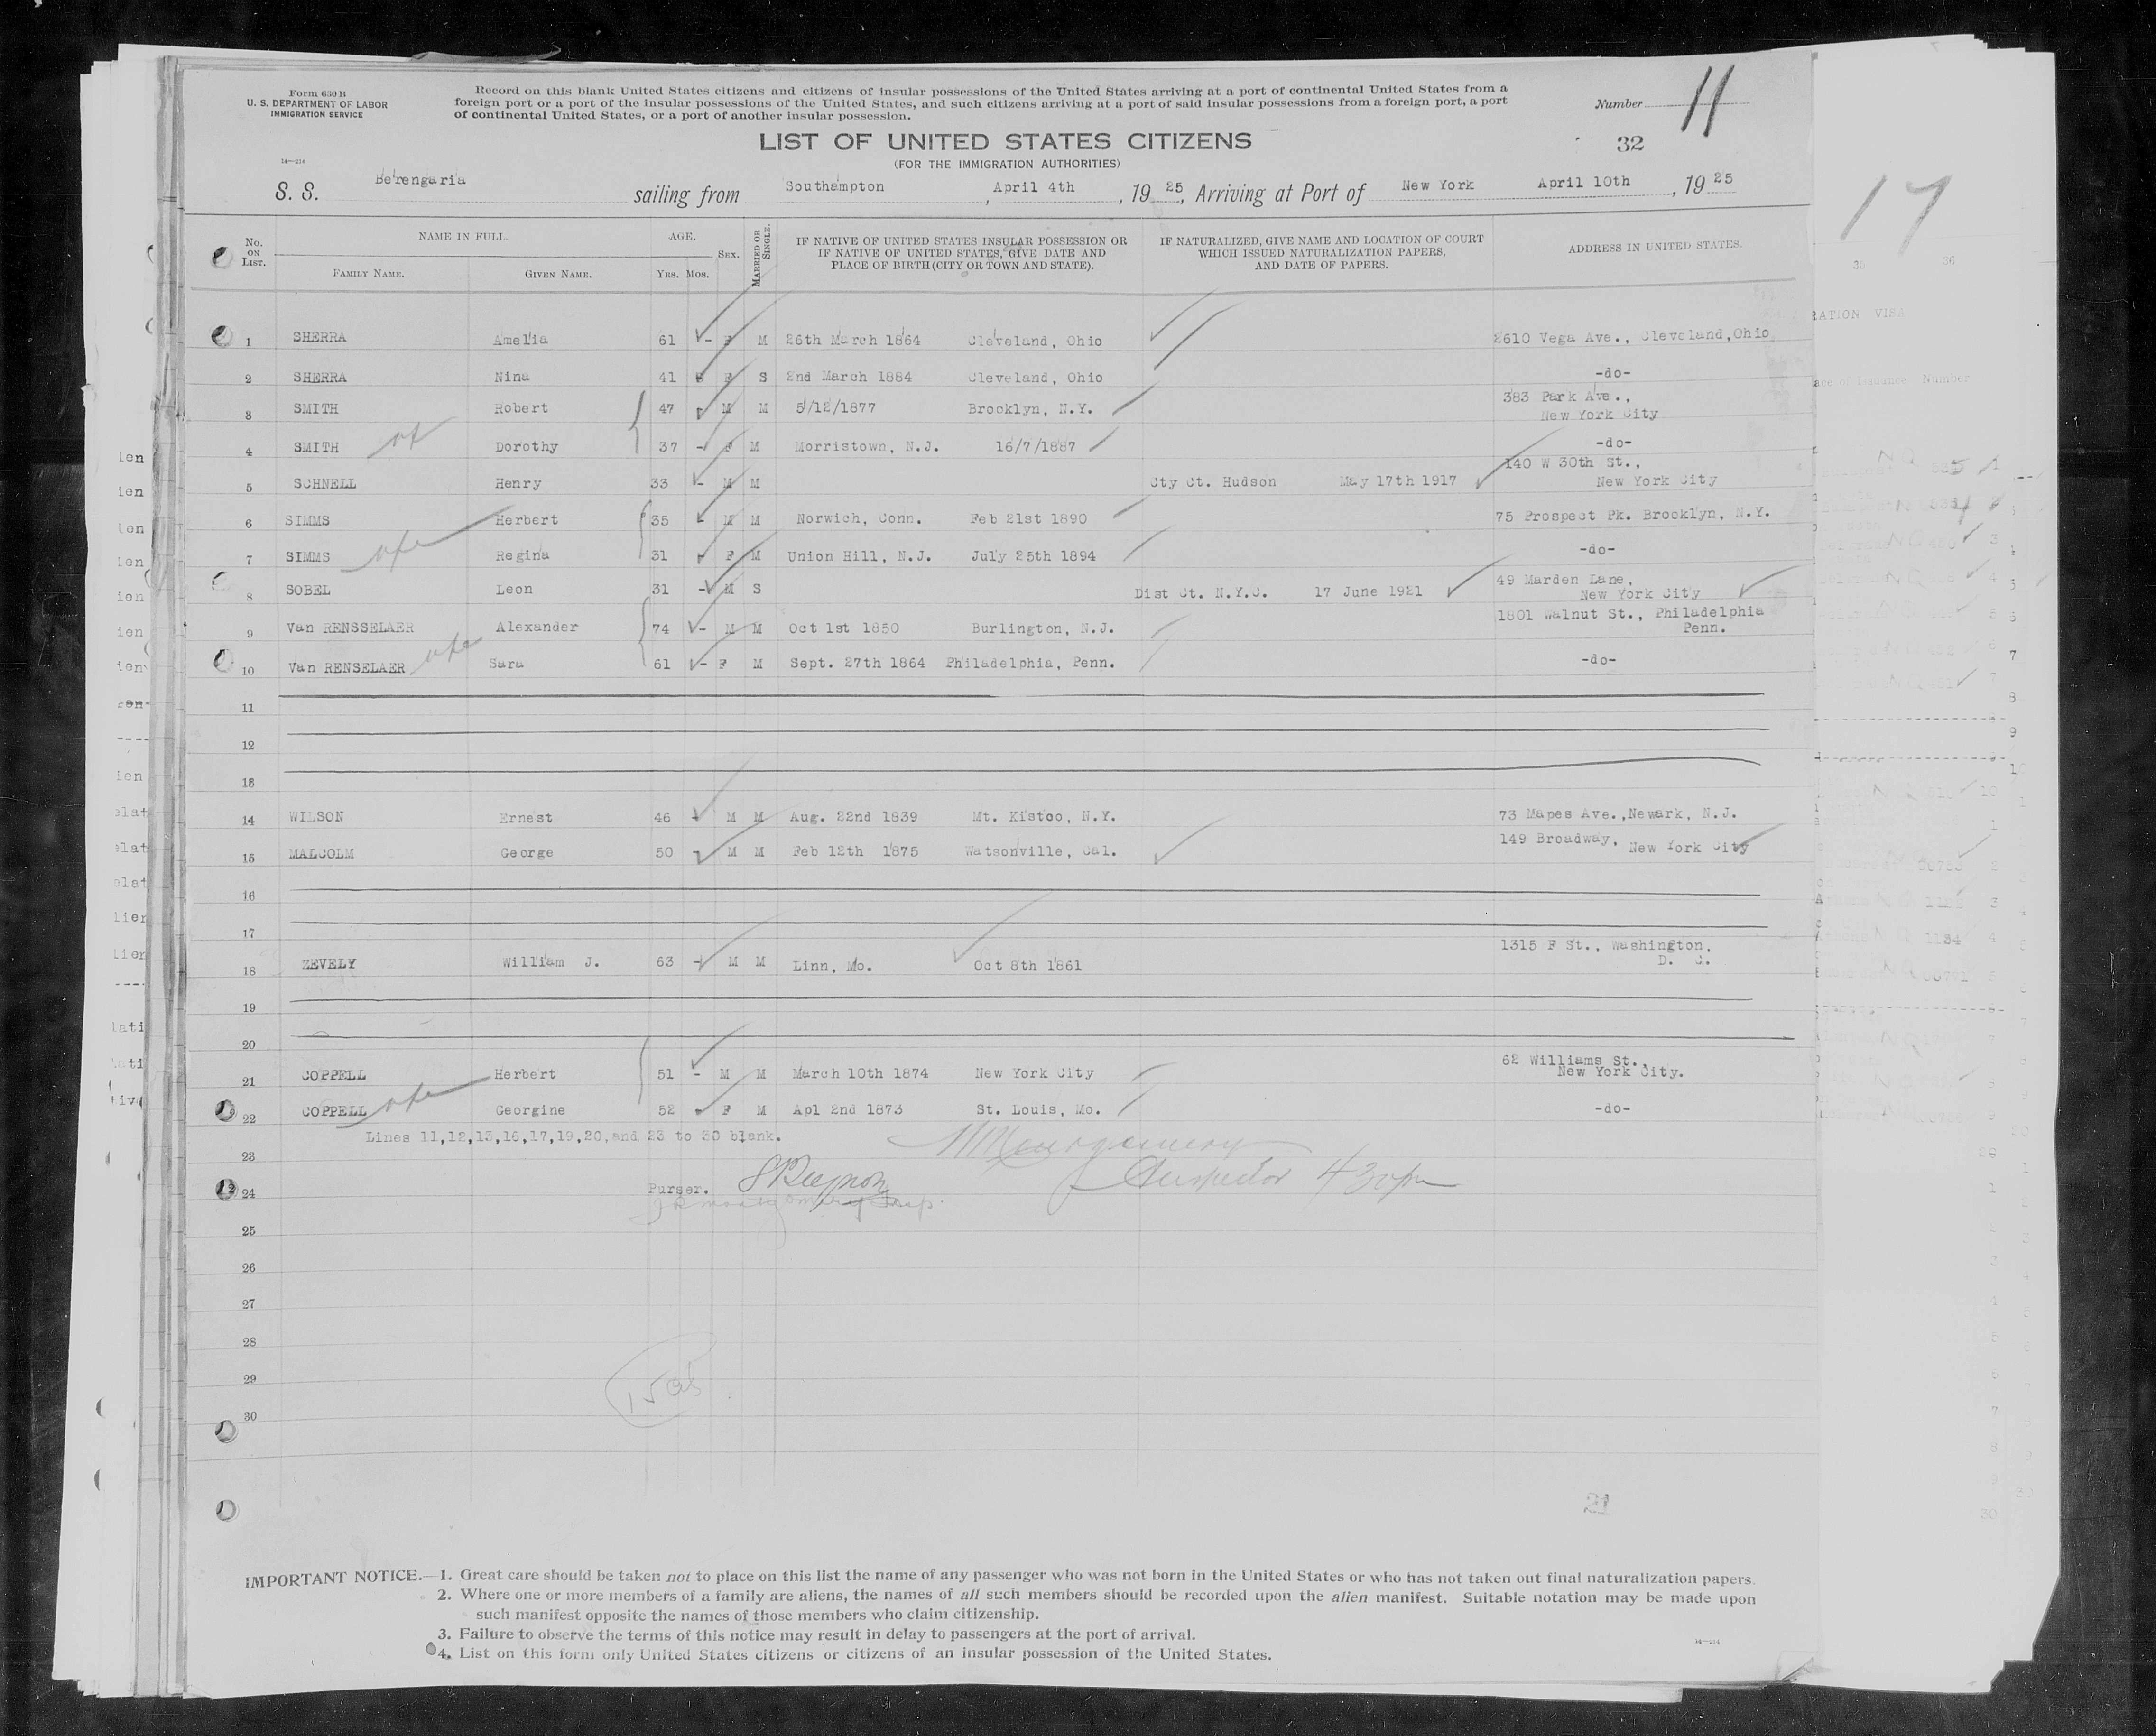 Form 630 B
U. S. DEPARTMENT OF LABOR
IMMIGRATION SERVICE
Record on this blank United States citizens and citizens of insular possessions of the United States arriving at a port of continental United States from a
foreign port or a port of the insular possessions of the United States, and such citizens arriving at a port of said insular possessions from a foreign port, a port
of continental United States, or a port of another insular possession.
Number 11
LIST OF UNITED STATES CITIZENS
32
(FOR THE IMMIGRATION AUTHORITIES)
14—214
S. S. Berengaria sailing from Southampton, April 4th, 1925, Arriving at Port of New York April 10th, 1925
17
No. ON LIST. NAME IN FULL. FAMILY NAME. GIVEN NAME. AGE. YRS. MOS. SEX. MARRIED OR SINGLE. IF NATIVE OF UNITED STATES INSULAR POSSESSION OR IF NATIVE OF UNITED STATES, GIVE DATE AND PLACE OF BIRTH (CITY OR TOWN AND STATE). IF NATURALIZED, GIVE NAME AND LOCATION OF COURT WHICH ISSUED NATURALIZATION PAPERS, AND DATE OF PAPERS. ADDRESS IN UNITED STATES.
35 36
RATION VISA
1 SHERRA Amelia 61 - F M 26th March 1864 Cleveland, Ohio 2610 Vega Ave., Cleveland,Ohio
2 SHERRA Nina 41 F S 2nd March 1884 Cleveland, Ohio -do-
ace of issuance Number
3 SMITH Robert 47 M M 5/12/1877 Brooklyn, N.Y. 383 Park Ave.,
New York City
4 SMITH Dorothy 37 - F M Morristown, N.J. 16/7/1887 -do-
5 SCHNELL Henry 33 - M M Cty Ct. Hudson May 17th 1917 140 W 30th St.,
New York City
6 SIMMS Herbert 35 - M M Norwich, Conn. Feb 21st 1890 75 Prospect Pk. Brooklyn, N.Y.
7 SIMMS Regina 31 F M Union Hill, N.J. July 25th 1894 -do-
8 SOBEL Leon 31 - M S Dist Ct. N.Y.C. 17 June 1921 49 Marden Lane,
New York City
9 Van RENSSELAER Alexander 74 - M M Oct 1st 1850 Burlington, N.J. 1801 Walnut St., Philadelphia
Penn.
10 Van RENSELAER Sara 61 - F M Sept. 27th 1864 Philadelphia, Penn. -do-
11
12
13
14 WILSON Ernest 46 - M M Aug. 22nd 1839 Mt. Kistoo, N.Y. 73 Mapes Ave.,Newark, N.J.
15 MALCOLM George 50 - M M Feb 12th 1875 Watsonville, Cal. 149 Broadway, New York City
16
17
18 ZEVELY William J. 63 - M M Linn, Mo. Oct 8th 1861 1315 F St., Washington,
D. C.
19
20
21 COPPELL Herbert 51 - M M March 10th 1874 New York City 62 Williams St.,
New York City.
22 COPPELL Georgine 52 - F M Apl 2nd 1873 St. Louis, Mo. -do-
Lines 11,12,13,16,17,19,20,and 23 to 30 blank.
23
24 Purser. Inspector 430pm
25
26
27
28
29
30
21
IMPORTANT NOTICE.—1. Great care should be taken not to place on this list the name of any passenger who was not born in the United States or who has not taken out final naturalization papers.
2. Where one or more members of a family are aliens, the names of all such members should be recorded upon the alien manifest. Suitable notation may be made upon
such manifest opposite the names of those members who claim citizenship.
3. Failure to observe the terms of this notice may result in delay to passengers at the port of arrival.
4. List on this form only United States citizens or citizens of an insular possession of the United States.
14—214